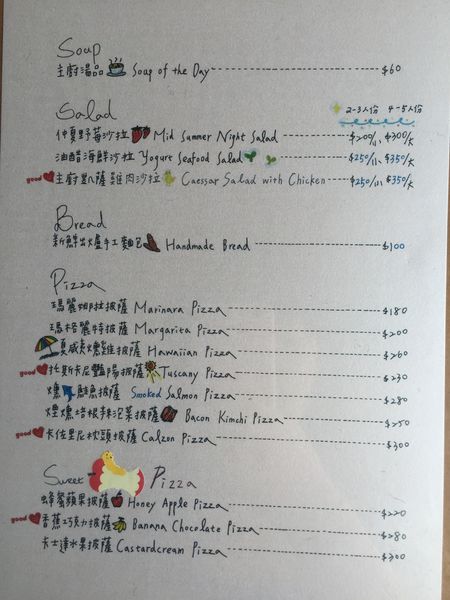 Soup
主廚湯品 Soup of the Day $60
Salad 2-3人份 4-5人份
仲夏野莓沙拉 Mid Summer Night Salad $200/小, $300/大
油醋海鮮沙拉 Yogurt Seafood Salad $250/小, $350/大
good 主廚凱薩雞肉沙拉 Caessar Salad with Chicken $250/小, $350/大
Bread
新鮮出爐手工麵包 Handmade Bread $100
Pizza
瑪麗娜拉披薩 Marinara Pizza $180
瑪格麗特披薩 Margarita Pizza $200
夏威夷燻雞披薩 Hawaiian Pizza $260
good 托斯卡尼豔陽披薩 Tuscany Pizza $230
燻鮭魚披薩 Smoked Salmon Pizza $280
煙燻培根辣泡菜披薩 Bacon Kimchi Pizza $250
good 卡佐里尼枕頭披薩 Calzon Pizza $300
Sweet Pizza
蜂蜜蘋果披薩 Honey Apple Pizza $220
good 香蕉巧克力披薩 Banana Chocolate Pizza $280
卡士達水果披薩 Castardcream Pizza $300